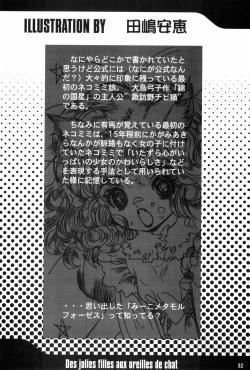 ILLUSTRATION BY 田嶋安恵
なにやらどこかで書かれていたと
思うけど公式には（なにが公式なん
だ？）大々的に印象に残っている最
初のネコミミ娘、 大島弓子作“綿
の国星”の主人公“諏訪野チビ猫”
である。
ちなみに有馬が覚えている最初の
ネコミミは、15年程前にかがみあき
らなんかが脈絡もなく女の子に付け
ていたネコミミで「いたずら心がいっ
ぱいの少女のかわいらしさ」など
を表現する手法として用いられていた
様に記憶している。
・・・思い出した「みーこメタモル
フォーゼス」って知ってる？
Des jolies filles aux oreilles de chat
32